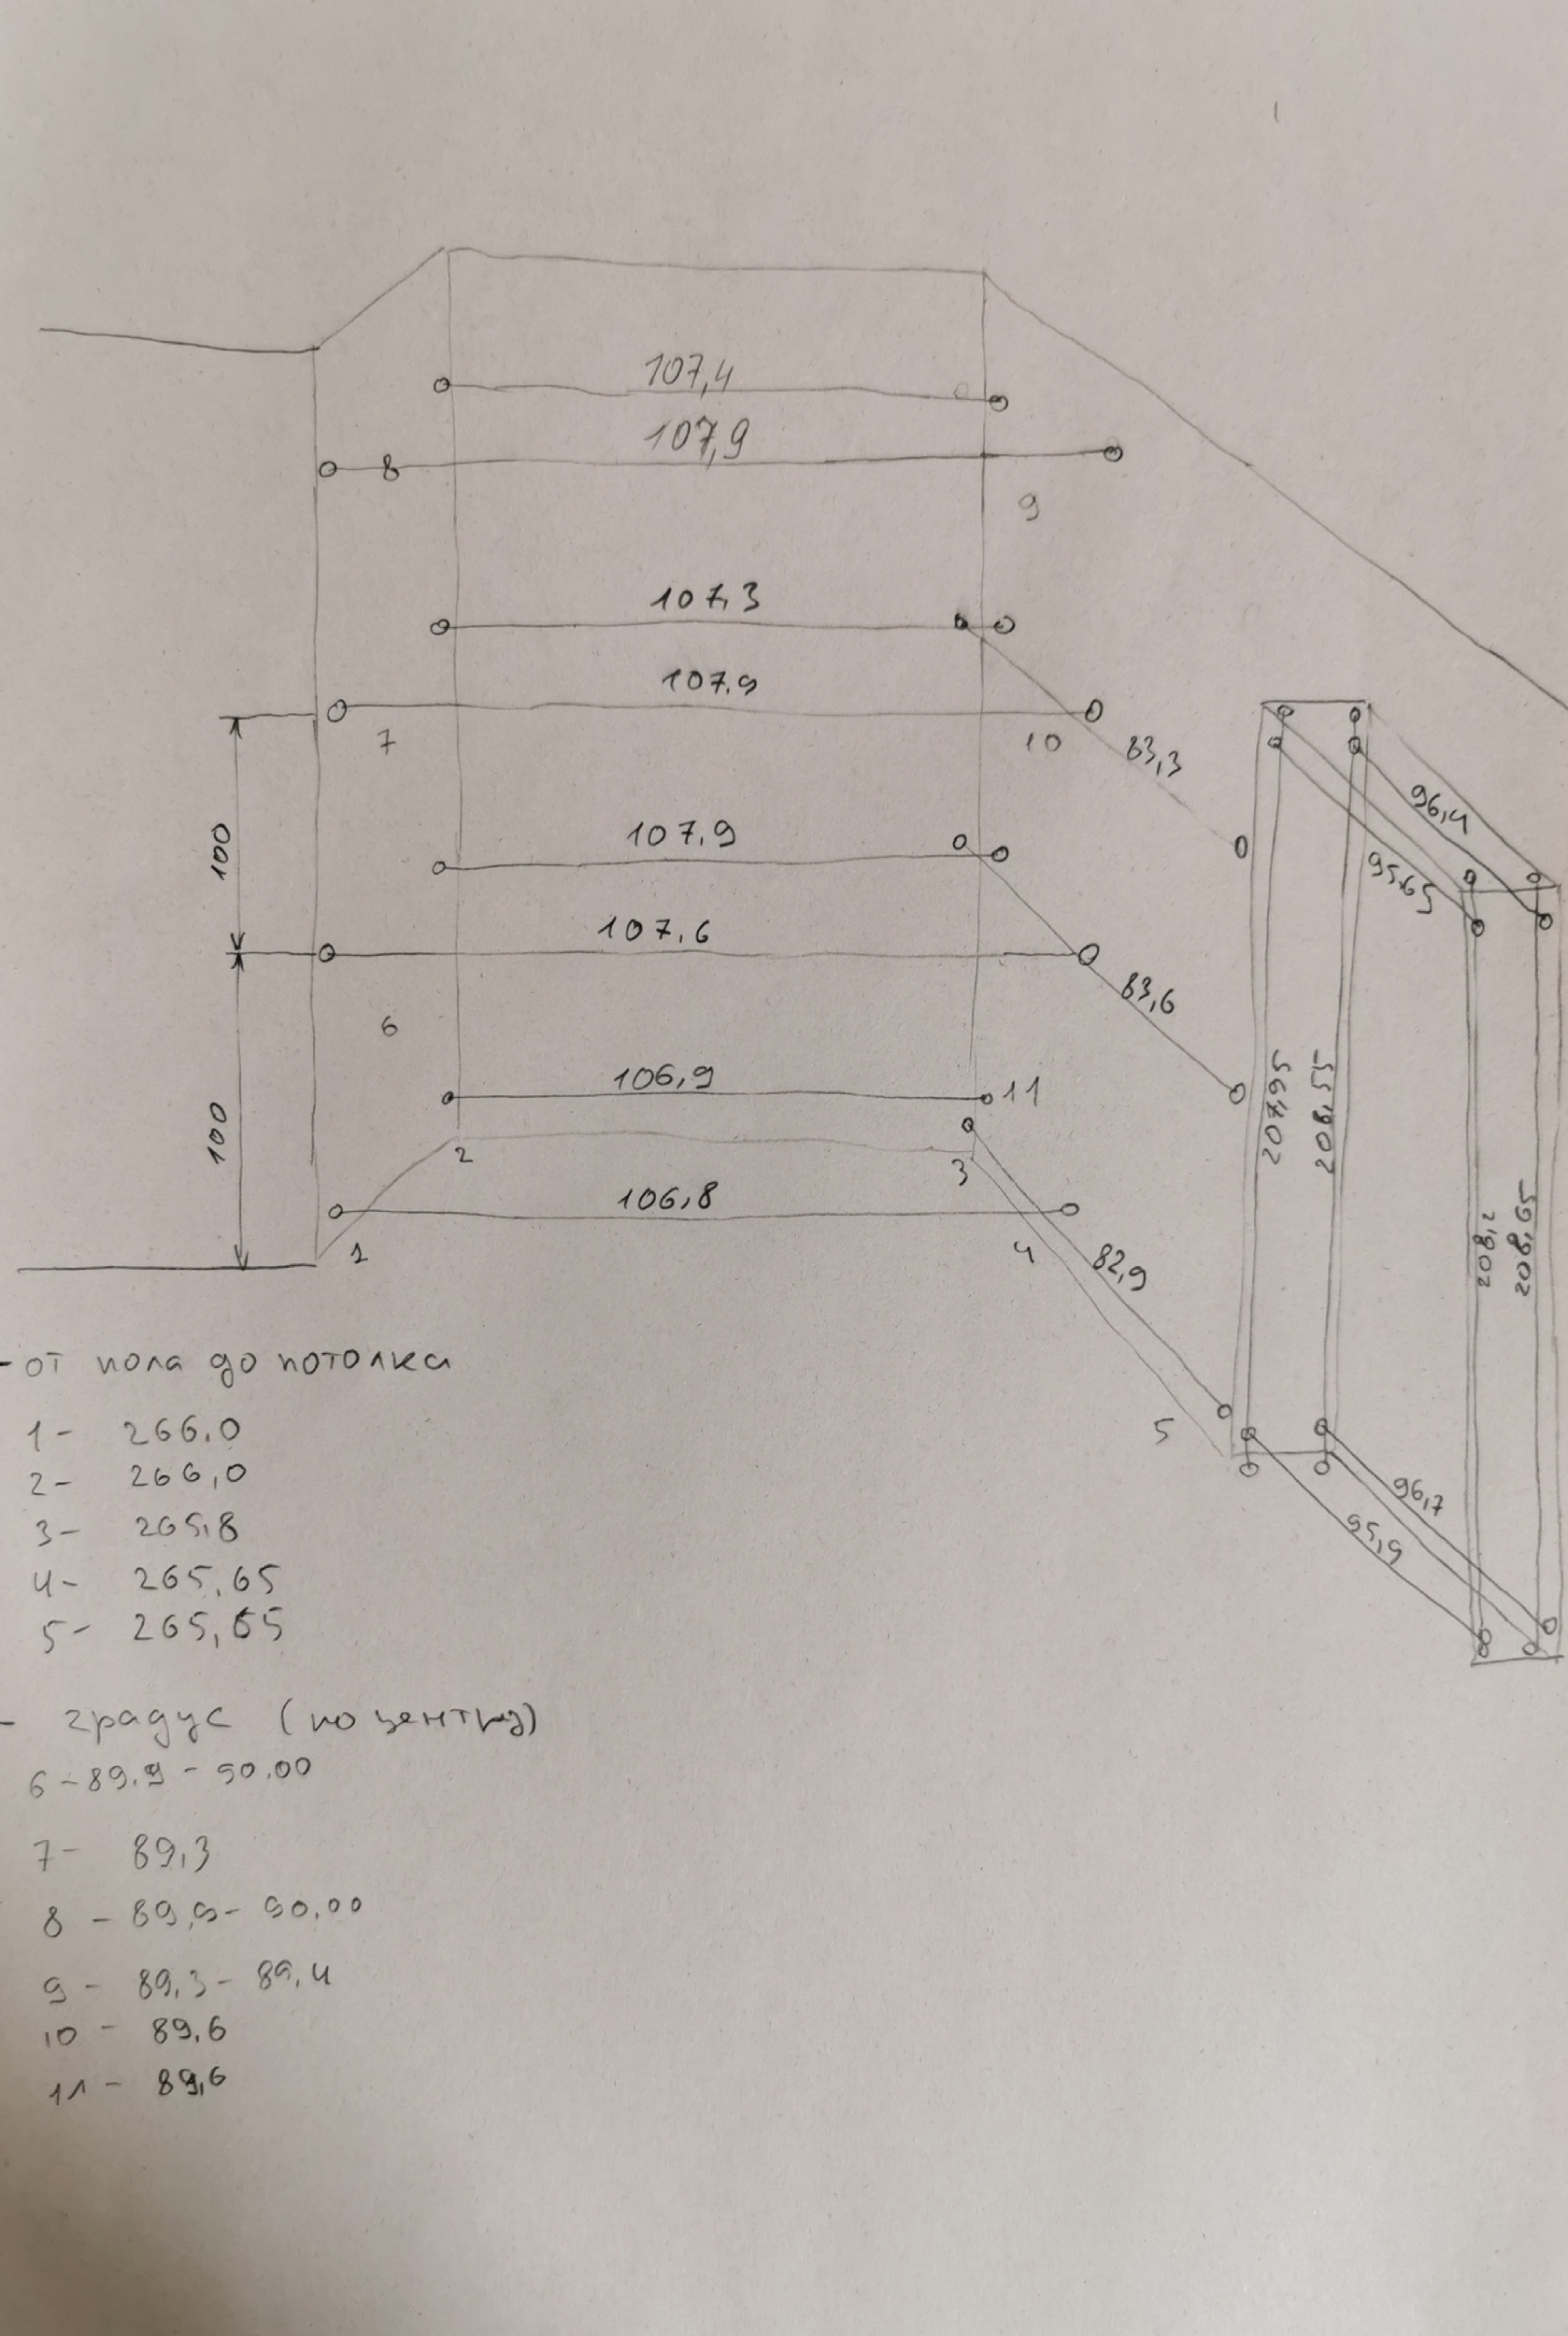 107,4
107,9
8
9
107,3
107,9
7
10
83,3
96,4
95,65
100
107,9
107,6
83,6
6
106,9
11
207,95
208,55
2
3
100
106,8
1
4
82,9
208,2
208,65
- от пола до потолка
1- 266,0
2- 266,0
3- 265,8
4- 265,65
5- 265,65
5
96,7
95,9
- градус (по центру)
6-89,9-90,00
7- 89,3
8 - 89,9- 90,00
9 - 89,3- 89,4
10 - 89,6
11 - 89,6